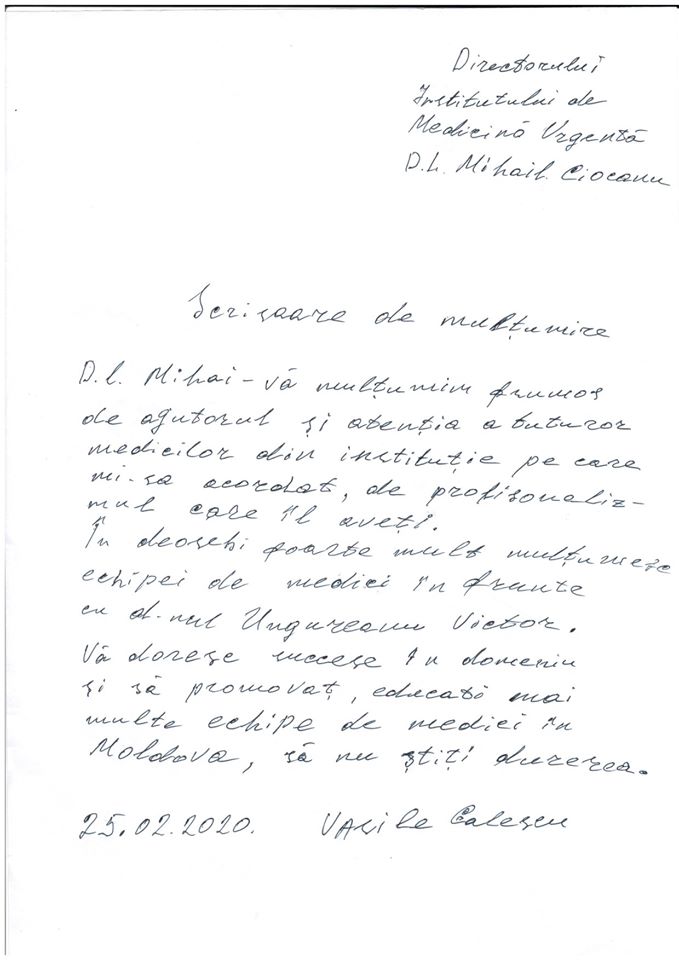 Directorului
Institutului de
Medicină Urgentă
D.L. Mihail Ciocanu
Scrisoare de mulțumire
D.l. Mihai - vă mulțumim frumos
de ajutorul și atenția a tuturor
medicilor din instituție pe care
mi-sa acordat, de profisonaliz-
mul care îl aveți.
În deosebi foarte mult mulțumesc
echipei de medici în frunte
cu d-nul Ungureanu Victor.
Vă doresc succese în domeniu
și să promovaț, educați mai
multe echipe de medici în
Moldova, să nu știți durerea.
25.02.2020. Vasile Calescu